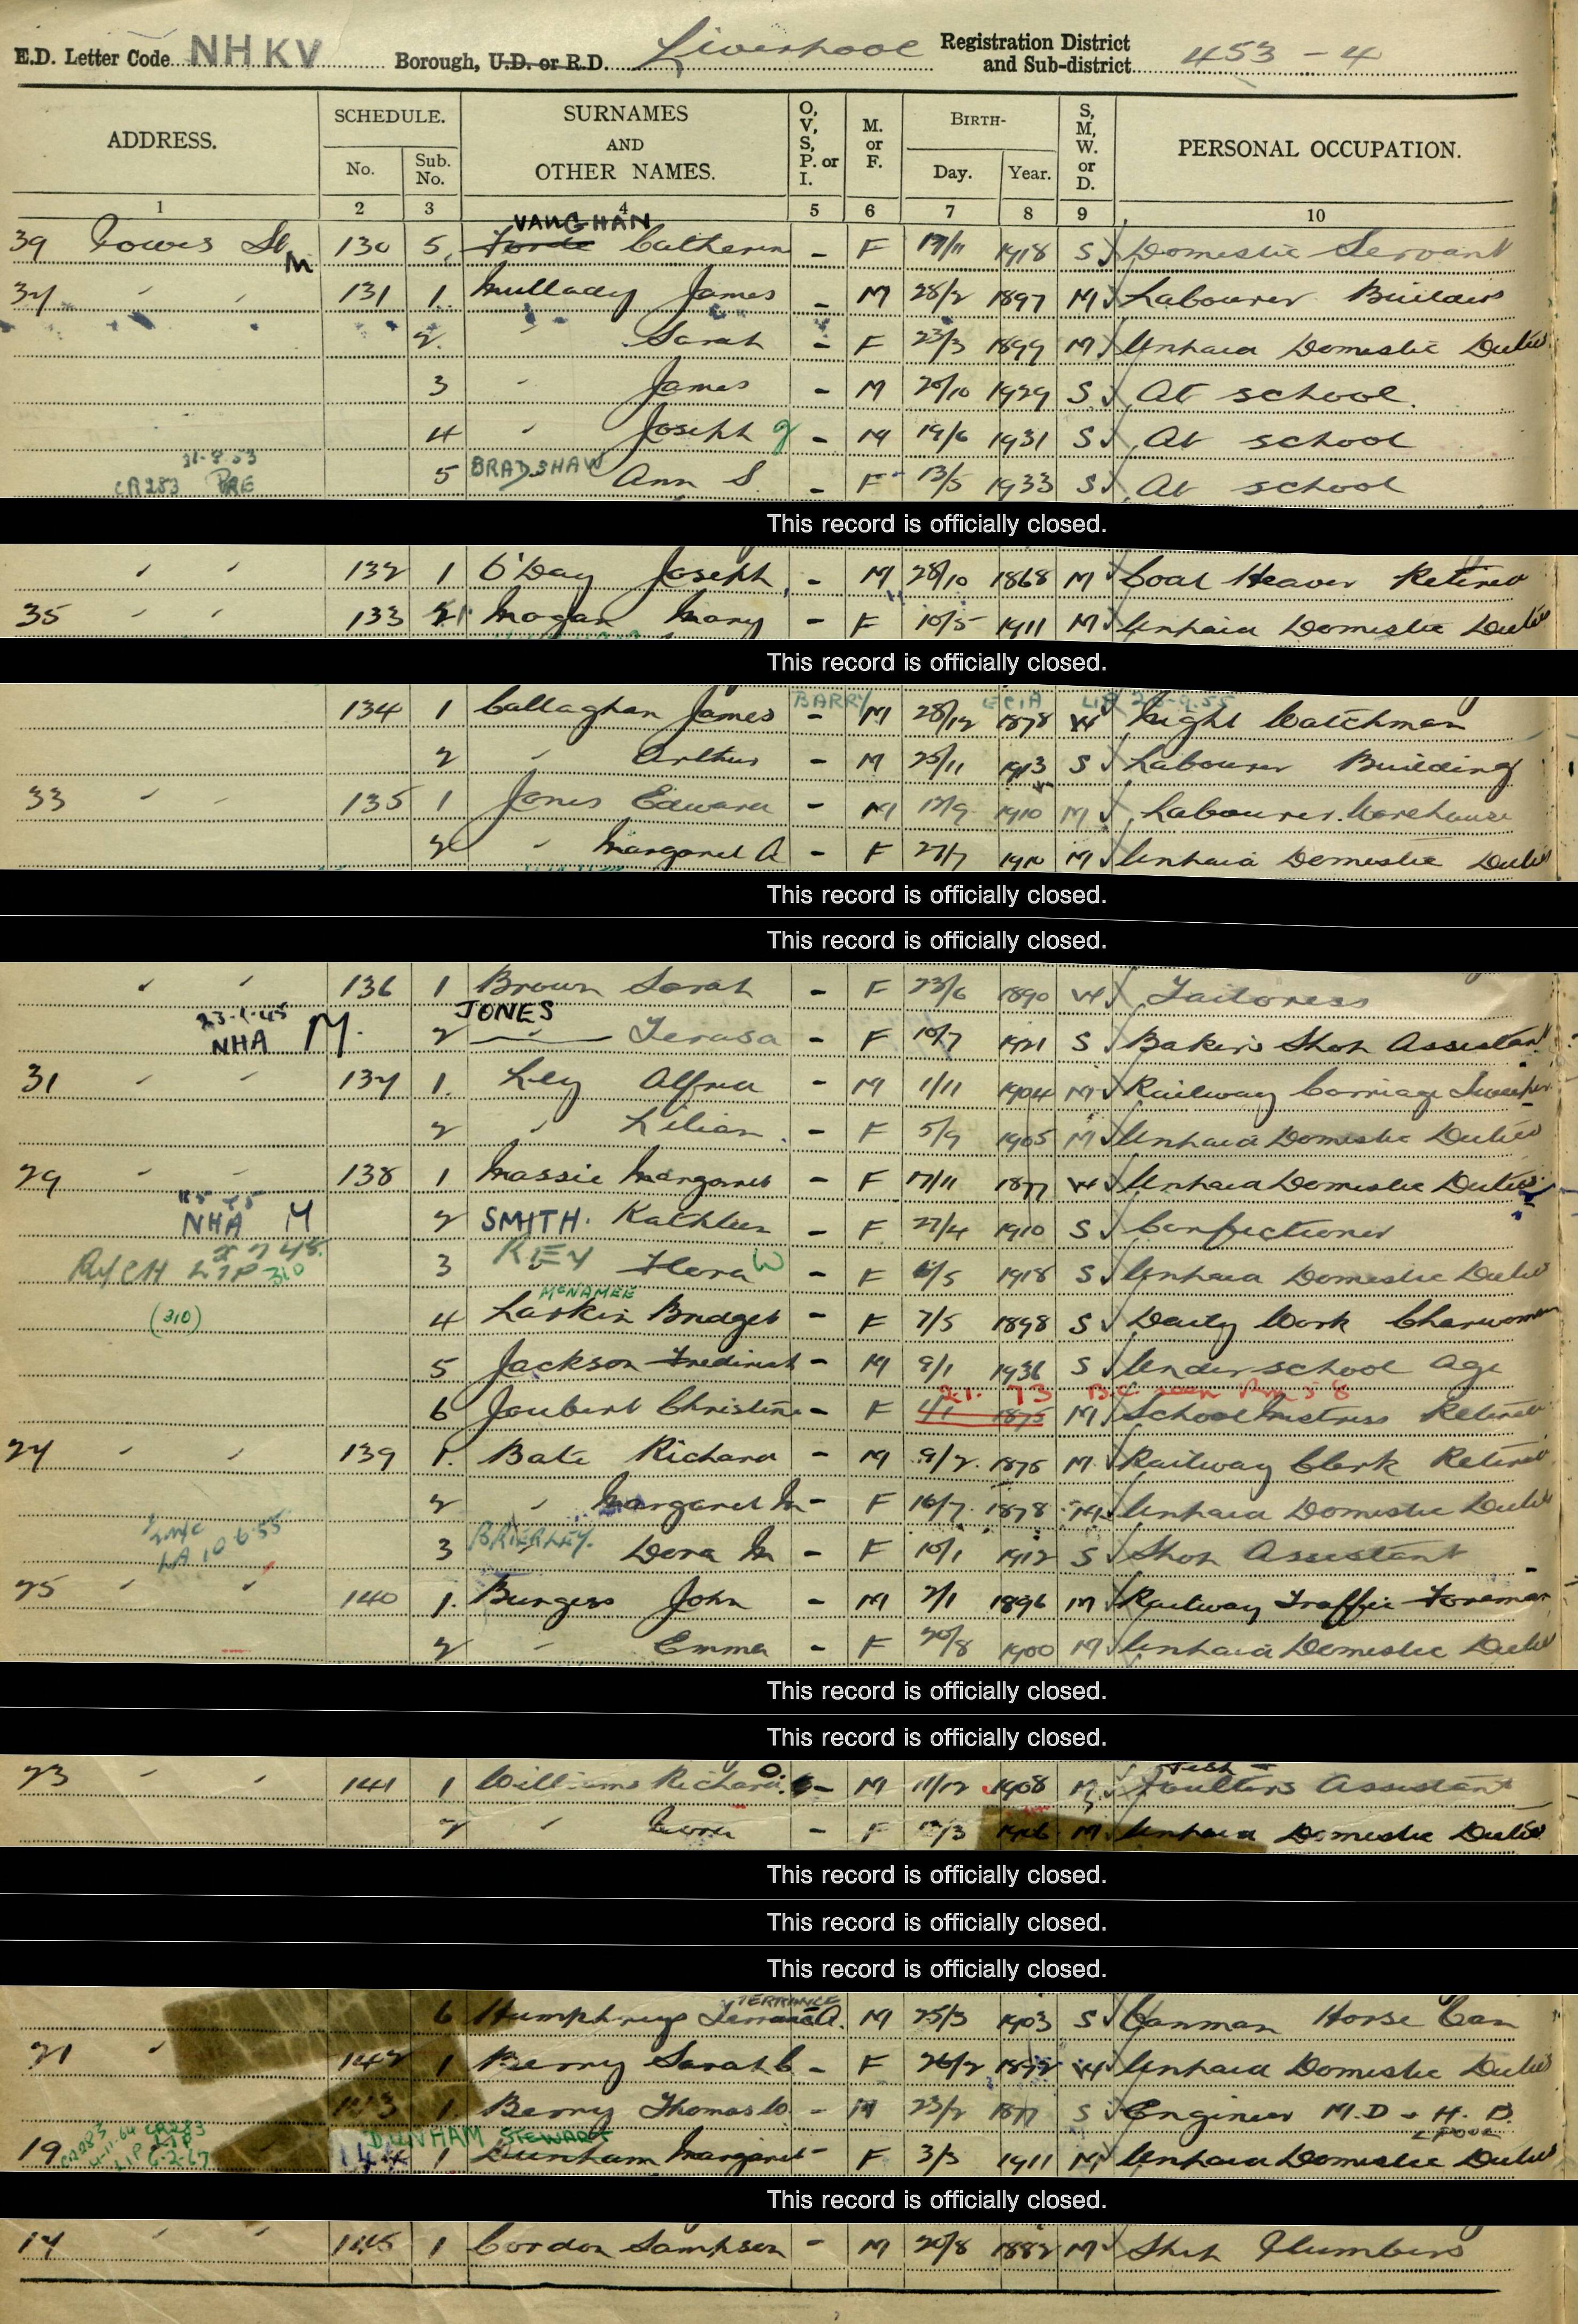 E.D. Letter Code NHKV Borough, U.D. or R.D. Liverpool Registration District and Sub-district 453-4
ADDRESS. SCHEDULE. No. Sub. No. SURNAMES AND OTHER NAMES. O, V, S, P. or I. M. or F. BIRTH- Day. Year. S, M, W. or D. PERSONAL OCCUPATION.
1 2 3 4 5 6 7 8 9 10
VAUGHAN
39 St M 130 5 Catherin - F 17/11 1918 S Domestic Servant
37 " " 131 1 Mullady James - M 28/2 1897 M Labourer Builders
2 " Sarah - F 23/3 1899 M Unpaid Domestic Duties
3 " James - M 28/10 1929 S At school.
4 " Joseph - M 19/6 1931 S At school
CR283 PRE 5 BRADSHAW Ann S. - F 13/5 1933 S At school
This record is officially closed.
" " 132 1 O'Day Joseph - M 28/10 1868 M Coal Heaver Retired
35 " " 133 1 Mogan Mary - F 10/5 1911 M Unpaid Domestic Duties
This record is officially closed.
BARRY
134 1 Callaghan James - M 28/12 1878 W Night Watchman
2 " Arthur - M 25/11 1913 S Labourer Building
33 " " 135 1 Jones Edward - M 1910 M Labourer Warehouse
2 " Margaret A - F 27/7 1910 M Unpaid Domestic Duties
This record is officially closed.
This record is officially closed.
" " 136 1 Brown Sarah - F 23/6 1890 W Tailoress
JONES
NHA M. 2 Terasa - F 10/7 1921 S Bakers Shop Assistant
31 " " 137 1. Ley Alfred - M 1/11 1904 M Railway Carriage Sweeper
2 " Lilian - F 5/9 1905 M Unpaid Domestic Duties
29 " " 138 1 Massie Margaret - F 17/11 1877 W Unpaid Domestic Duties
NHA M 2 SMITH. Kathleen - F 27/4 1910 S Confectioner
310 3 KEY Flora W - F 1918 S Unpaid Domestic Duties
McNAMEE
(310) 4 Larkin Bridget - F 7/5 1898 S Daily Work Charwoman
5 Jackson Fredirick - M 9/1 1936 S Under school age
21. 73
6 Joubert Christine - F 1/1 1875 M School Mistress Retired
27 " " 139 1. Bate Richard - M 9/2 1875 M Railway Clerk Retired
2 " Margaret M - F 16/7 1878 M Unpaid Domestic Duties
LA 10 6.55 3 BRIERLEY. Dora M - F 10/1 1912 S Shop Assistant
25 " " 140 1. Burgess John - M 2/1 1896 M Railway Traffic Foreman
2 " Emma - F 20/8 1900 M Unpaid Domestic Duties
This record is officially closed.
This record is officially closed.
23 " " 141 1 Williams Richard O. - M 11/12 1908 M Fish Poulters Assistant
2 " - F M Unpaid Domestic Duties
This record is officially closed.
This record is officially closed.
This record is officially closed.
TERRANCE
6 Humphreys A. M 25/3 1903 S Carman Horse Van
21 " 142 1 Berry Sarah C - F 26/2 1872 W Unpaid Domestic Duties
143 1 Berry Thomas W. - M 23/2 1877 S Engineer M.D & H. B.
DUNHAM STEWART LPOOL
19 144 1 Dunham Margaret - F 3/3 1911 M Unpaid Domestic Duties
This record is officially closed.
17 " " 145 1 Cordon Sampson - M 20/8 1882 M Ship Plumbers